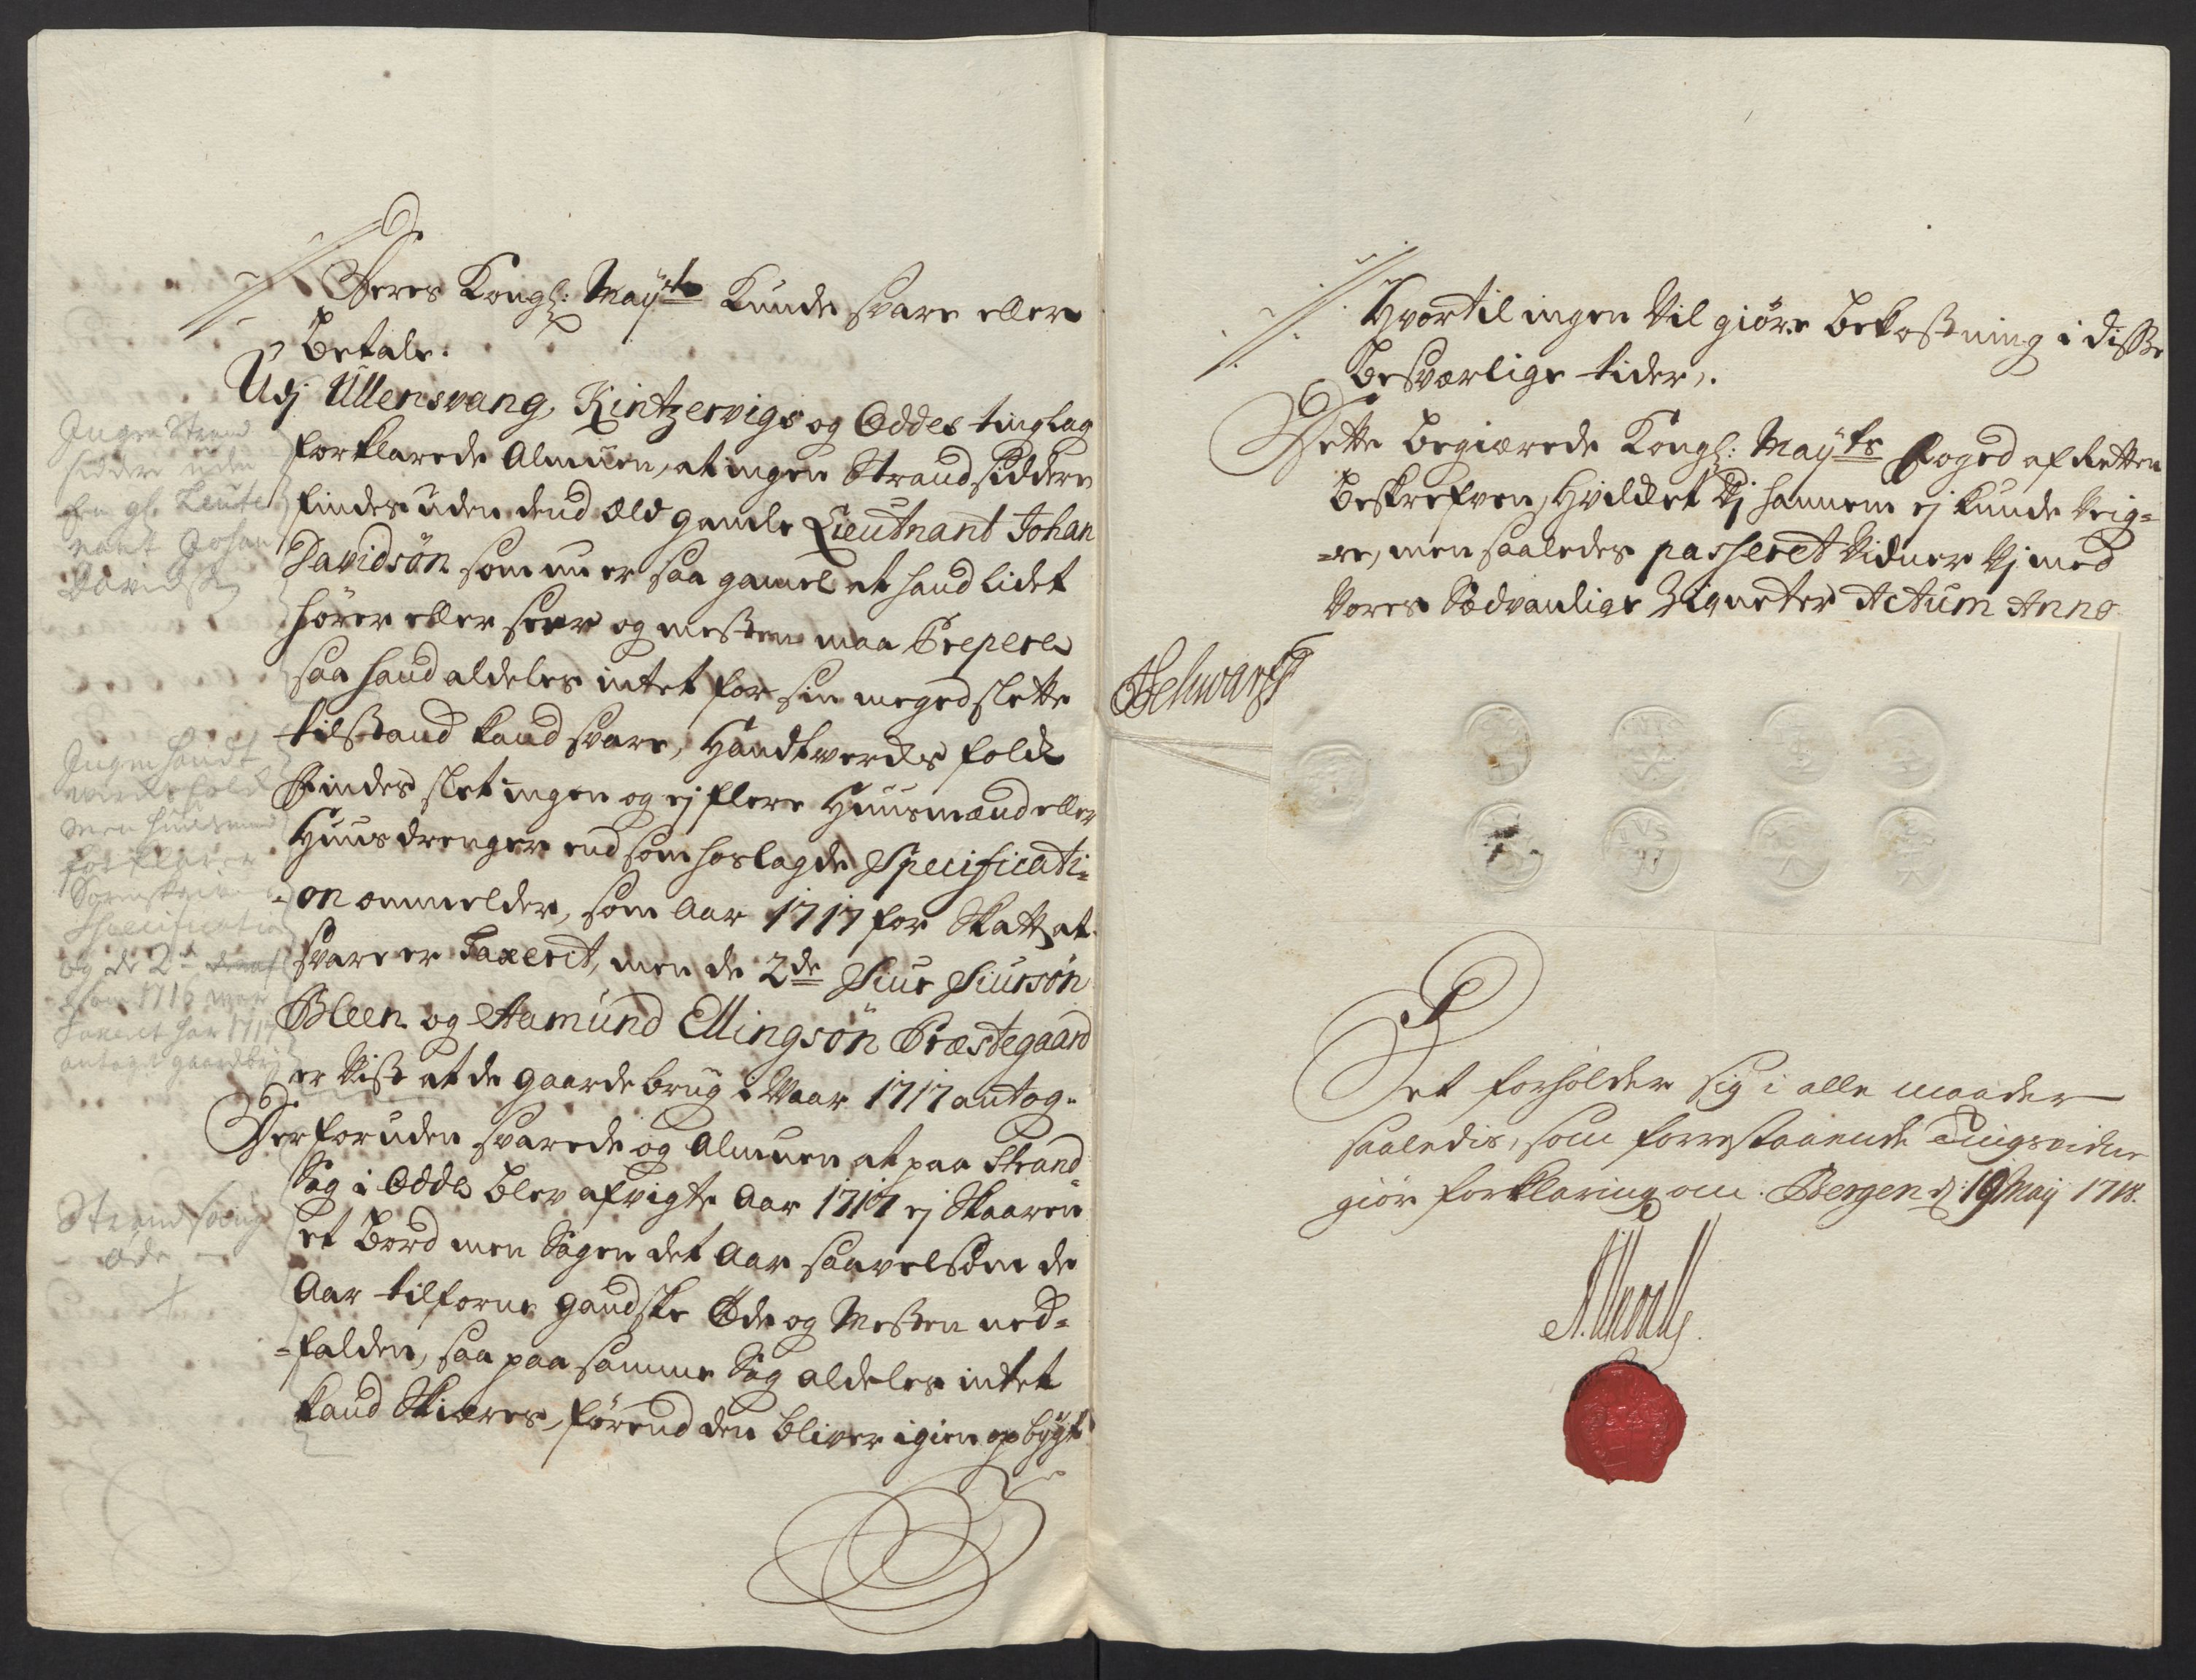 Deres Kongl: Mayst: kunde svare eller
betale.
Udj Ullensvang, Kintzervigs og Oddes tinglag
forklarede Almuen, at ingen Strandsiddere
findes uden dend æld gamle Lieutnant Johan
Davidsøn som nu er saa gamel at hand lidet
hører eller seer og mesten maa
saa hand aldeles intet for sin meged slette
tilstand kand svare, Handtverks folck
Findes slet ingen og ej flere Huusmænd eller
Huusdrenger end som hoslagde Specificati-
-on ommelder, som Aar 1717 for Skatt at
svare er Taxerit, men de 2de Siur Siursøn
Bleen og Aamund Ellingsøn Præstegaard
er Vist at de gaarde brug i Aar 1717 antog.
Derforuden svarede og Almuen at paa Strand
Sag i Odde blev afvigte Aar 1717 ej Skaaren
et Bord men Sagen det Aar saavelsom de
Aar tilforne gandske Øde og Mesten ned-
-falden, saa paa samme Sag aldeles intet
kand Skieres, førend den bliver igien opbygt
Ingen Strand
sidere uden
en gl. Leute
nant Johan
Davidsøn
Ingen handt
werks folck
men huusmend
forklarer
Sorenskriver
Specification
og de 2de
som 1716 war
Taxerit har 1717
antaget gaardbrug
Strand saug
øde
Hvortil ingen Vil giøre bekostning i disse
besværlige tider.
Dette begiærede Kongl: Mayts Foged af Retten
beskrefven, hvilcket Vj hannem ej kunde Veig-
-re, men saaledes passeret Vidner Vj med
Vores Sædvanlige Zigneter Actum Anno
Schwartz
Det forholder sig i alle maader
saaledis, som forrestaaende Tingsvidne
giør forklaring om. Bergen d: 19 Maij 1718.